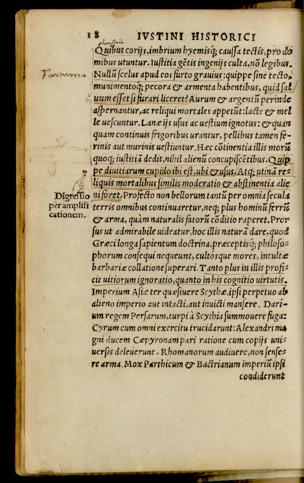 18 IVSTINI HISTORICI
Quibus corijs, imbrium hyemisq; caussa tectis, pro do
mibus utuntur. Iustitia gẽtis ingenijs culta, nõ legibus.
Nullũ scelus apud eos furto grauius: quippe sine tecto,
munimentoq; pecora & armenta habentibus, quid sal
uum esset si furari liceret? Aurum & argentũ perinde
aspernantur, ac reliqui mortales appetũt: lacte & mel
le uescuntur. Lanæ ijs usus ac uestium ignotus: & quan
quam continuis frigoribus urantur, pellibus tamen fe-
rinis aut murinis uestiuntur. Hæc cõtinentia illis morũ
quoq; iustitiã dedit, nihil alienũ concupiscẽtibus. Quip
pe diuitiarum cupido ibi est, ubi & usus. Atq; utinã re-
liquis mortalibus similis moderatio & abstinentia alie
ni foret. Profecto non bellorum tantũ per omnia secula
Digressio
per amplifi
cationem.
terris omnibus continuaretur, neq; plus hominũ ferrũ
& arma, quàm naturalis fatorũ cõditio raperet. Pror
sus ut admirabile uideatur, hoc illis naturã dare, quod
Græci longa sapientum doctrina, præceptisq́; philoso-
phorum consequi nequeunt, cultosque mores, incultæ
barbariæ collatione superari. Tanto plus in illis profi-
cit uitiorum ignoratio, quanto in his cognitio uirtutis.
Imperium Asiæ ter quæsiuere Scythæ, ipsi perpetuo ab
alieno imperio aut intacti, aut inuicti mansere. Dari-
um regem Persarum, turpi à Scythia summouere fuga:
Cyrum cum omni exercitu trucidarunt: Alexandri ma
gni ducem Cæpyronam pari ratione cum copijs uni-
uersis deleuerunt. Rhomanorum audiuere, non sense-
re arma. Mox Parthicum & Bactrianum imperiũ ipsi
condiderunt